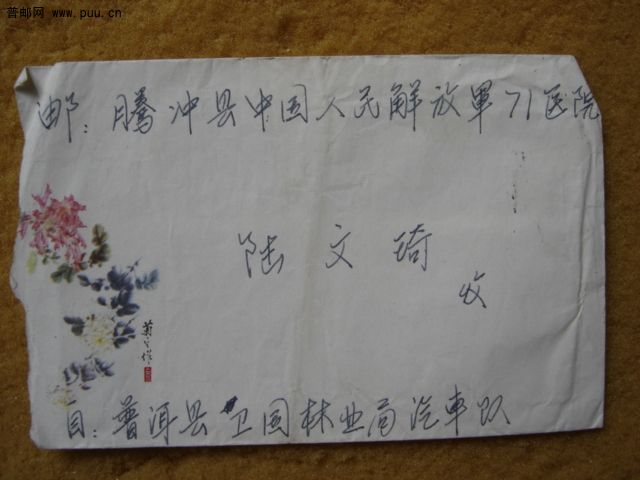 普邮网 www.puu.cn
邮：腾冲县中国人民解放軍71医院
陆文琦
收
菊
作
自：普洱县卫国林业局汽車队